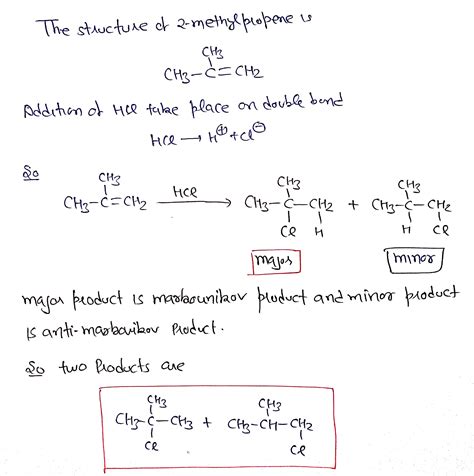 The structure of 2-methylpropene is
CH3
CH3-C=CH2
Addition of HCl take place on double bond
HCl → H⊕ + Cl⊖
So
CH3 CH3 CH3
CH3-C=CH2 HCl → CH3-C-CH2 + CH3-C-CH2
Cl H H Cl
major minor
major product is markounikov product and minor product
is anti-markovikov product.
So two products are
CH3 CH3
CH3-C-CH3 + CH3-CH-CH2
Cl Cl